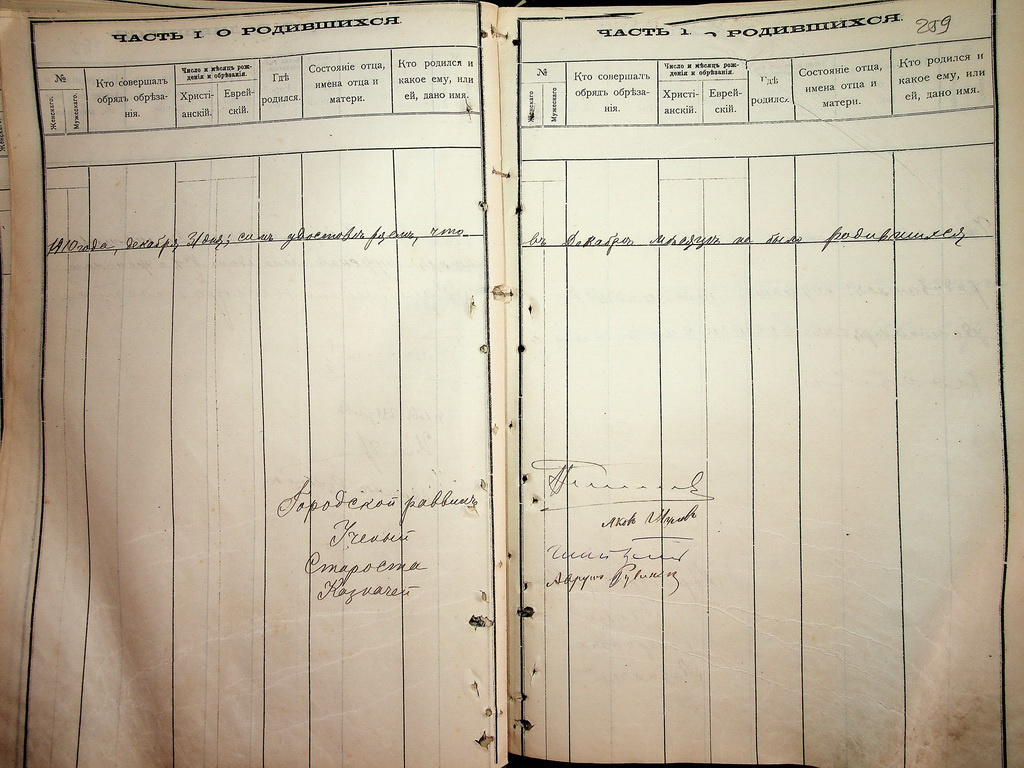 ЧАСТЬ I. О РОДИВШИХСЯ.
№
Женскаго.
Мужескаго
Кто совершалъ обрядъ обрѣзанія.
Число и мѣсяцъ рожденія и обрѣзанія.
Христіанскій.
Еврейскій.
Гдѣ родился.
Состояніе отца, имена отца и матери.
Кто родился и какое ему, или ей, дано имя.
ЧАСТЬ I. О РОДИВШИХСЯ.
259
№
Женскаго
Мужескаго
Кто совершалъ обрядъ обрѣзанія.
Число и мѣсяцъ рожденія и обрѣзанія.
Христіанскій.
Еврейскій.
Гдѣ родился.
Состояніе отца, имена отца и матери.
Кто родился и какое ему, или ей, дано имя.
1910 года, декабря 31 дня; симъ удостовѣряемъ, что въ Декабрѣ мѣсяцѣ не было родившихся
Городской раввинъ
Ученый
Яковъ
Староста
Казначей